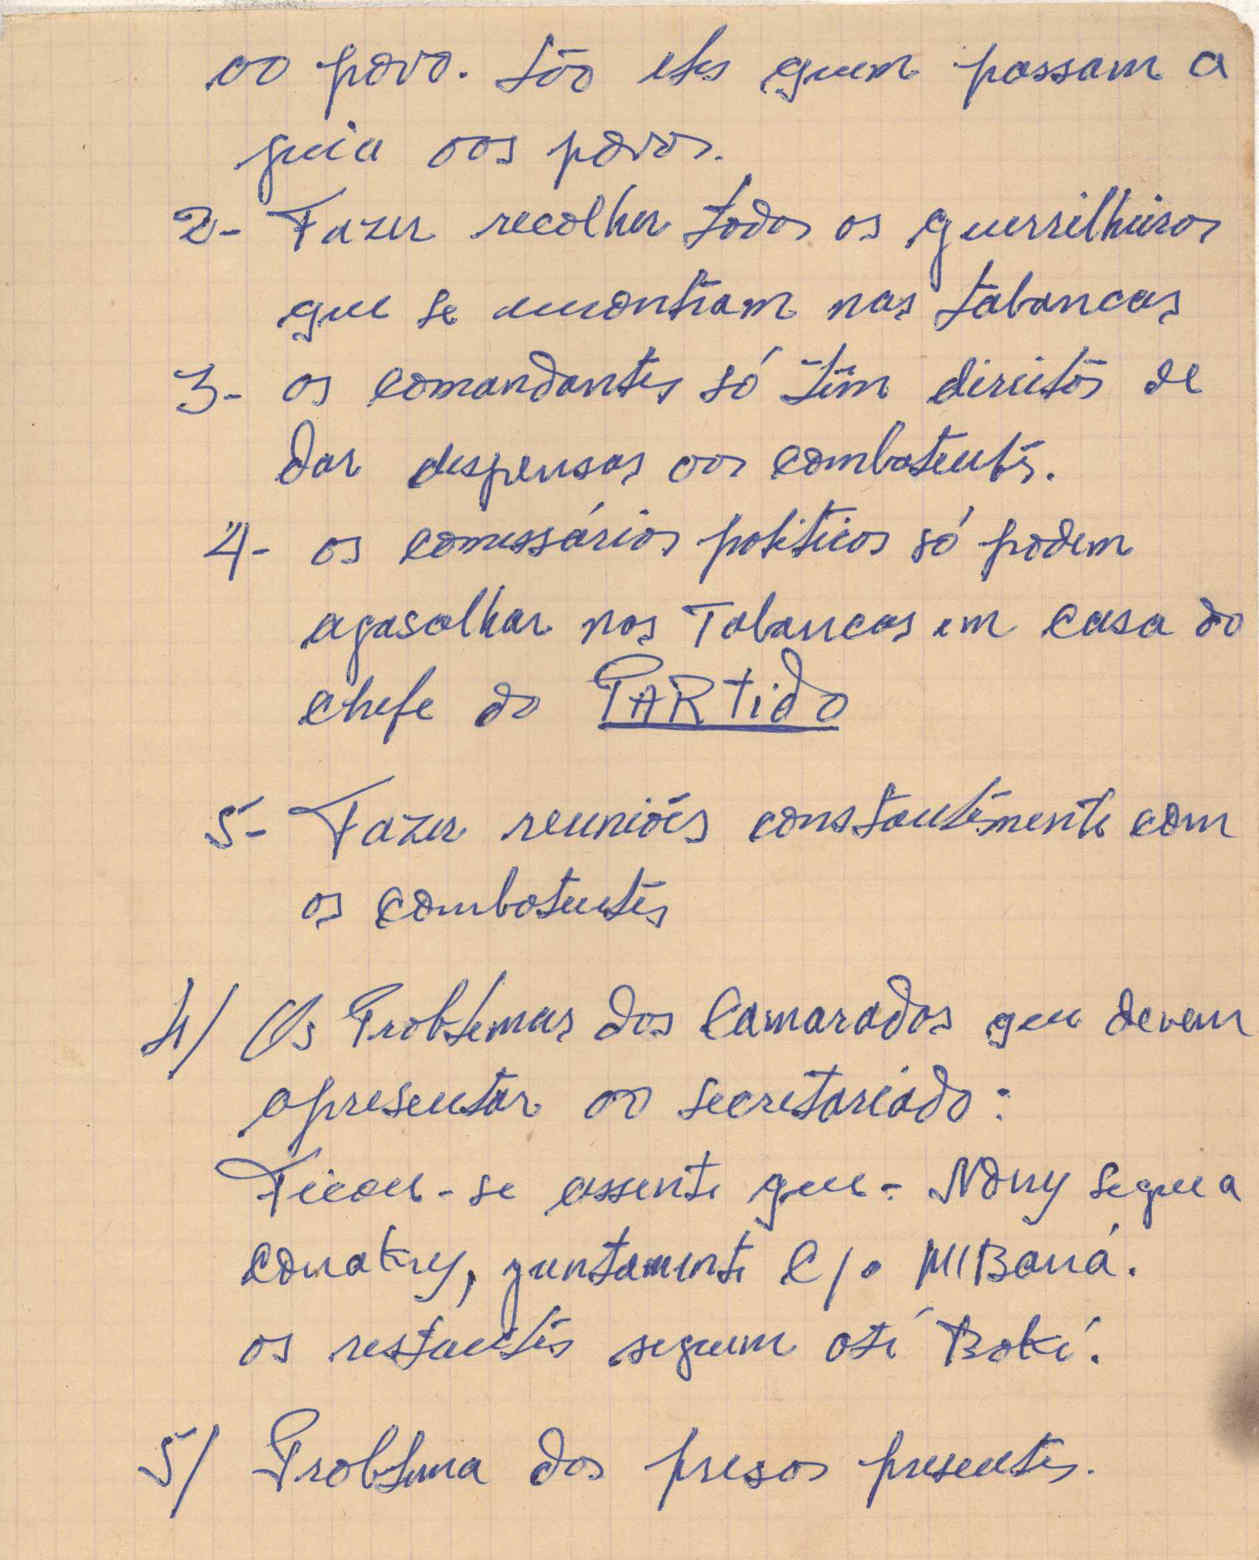 ao povo. São eles quem passam a
guia aos povos.
2- Fazer recolher todos os guerrilheiros
que se encontram nas tabancas
3- os comandantes só têm direitos de
dar dispensas aos combatentes.
4- os comissários politicos só podem
agasalhar nas Tabancas em casa do
chefe do PARtido
5- Fazer reuniões constantemente com
os combatentes
4/ Os Problemas dos Camaradas que devem
apresentar ao secretariádo:
Ficou-se assente que- Nony segue a
Conakry, juntamente C/o MBaná.
os restantes seguem até Boké.
5/ Problema dos presos presentes.